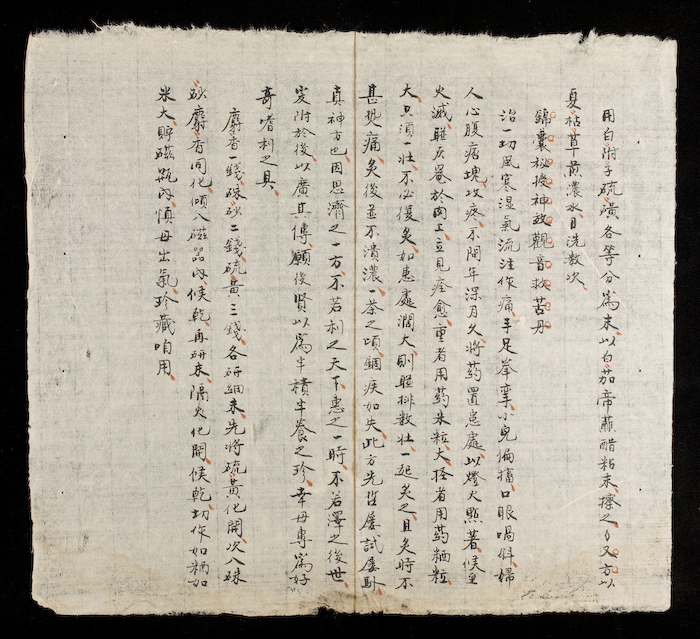 用白附子硫磺各等分為末以白茄帝蘸醋粘末擦之又方以
夏枯草煎濃水日洗数次
錦囊秘授神效觀音救苦丹
治一切風寒湿氣流注作痛手足拳攣小兒偏搐口眼喎斜婦
人心腹痞塊攻疼不問年深月久將药置患處以燈火點著候至
火滅連灰罨於肉上立見痊愈重者用药米粒大輕者用药粞粒
大只須一壮不必復灸如患處濶大則連排数壮一起灸之且灸時不
甚現痛灸後並不潰濃一茶之頃錮疾如失此方先哲屡試屡騐
真神方也因思濟之一方不若利之天下惠之一時不若澤之後世
爰附於後以廣其傳願後贤以為半積半養之珍幸毋專為好
奇嗜利之具
麝香一錢硃砂二錢硫黃三錢各研細末先將硫黃化開次入硃
砂麝香同化傾入磁器內候乾再研末隔火化開候乾切作如粞如
米大貯磁瓶內慎毋出氣珍藏咱用